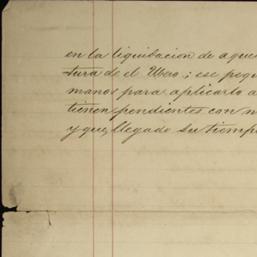 en la liquidacion de aque
tura de el Ubero; ese pequ
manos para aplicarlo a
tienen pendientes con m
y que, llegado su tiempo